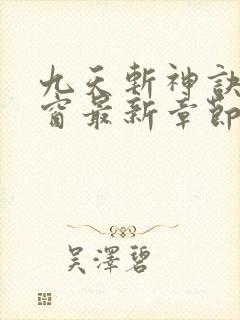 九天斬神訣
窗最新章節
吳澤碧